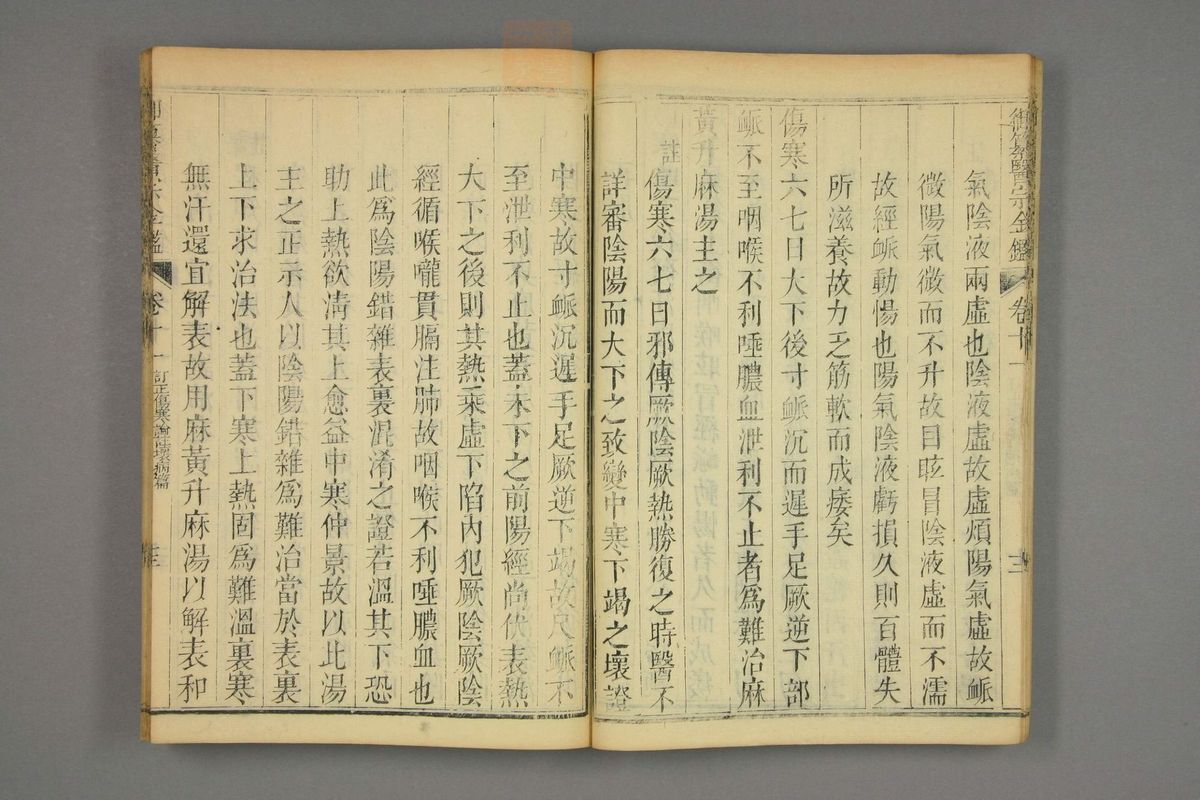 御纂醫宗金鑑 卷十一 三
氣陰液兩虛也陰液虛故虛煩陽氣虛故𧖴
微陽氣微而不升故目眩冒陰液虛而不濡
故經𧖴動惕也陽氣陰液虧損久則百體失
所滋養故力乏筋軟而成痿矣
傷寒六七日大下後寸𧖴沉而遲手足厥逆下部
𧖴不至咽喉不利唾膿血泄利不止者爲難治麻
黃升麻湯主之
註
傷寒六七日邪傳厥陰厥熱勝復之時醫不
詳審陰陽而大下之致變中寒下竭之壞證
中寒故寸𧖴沉遲手足厥逆下竭故尺𧖴不
至泄利不止也蓋未下之前陽經尚伏表熱
大下之後則其熱乘虛下陷內犯厥陰厥陰
經循喉嚨貫膈注肺故咽喉不利唾膿血也
此爲陰陽錯雜表裏混淆之證若溫其下恐
助上熱欲清其上愈益中寒仲景故以此湯
主之正示人以陰陽錯雜爲難治當於表裏
上下求治法也蓋下寒上熱固爲難溫裏寒
無汗還宜解表故用麻黃升麻湯以解表和
金鑑 卷十一 訂正傷寒論註壞病篇